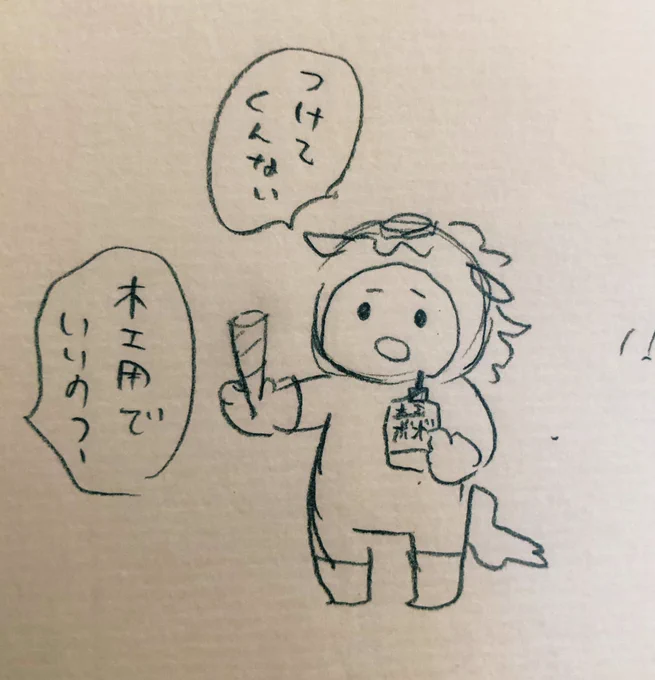 つけて
くんない
木工用で
いいの?
木工
ボンド